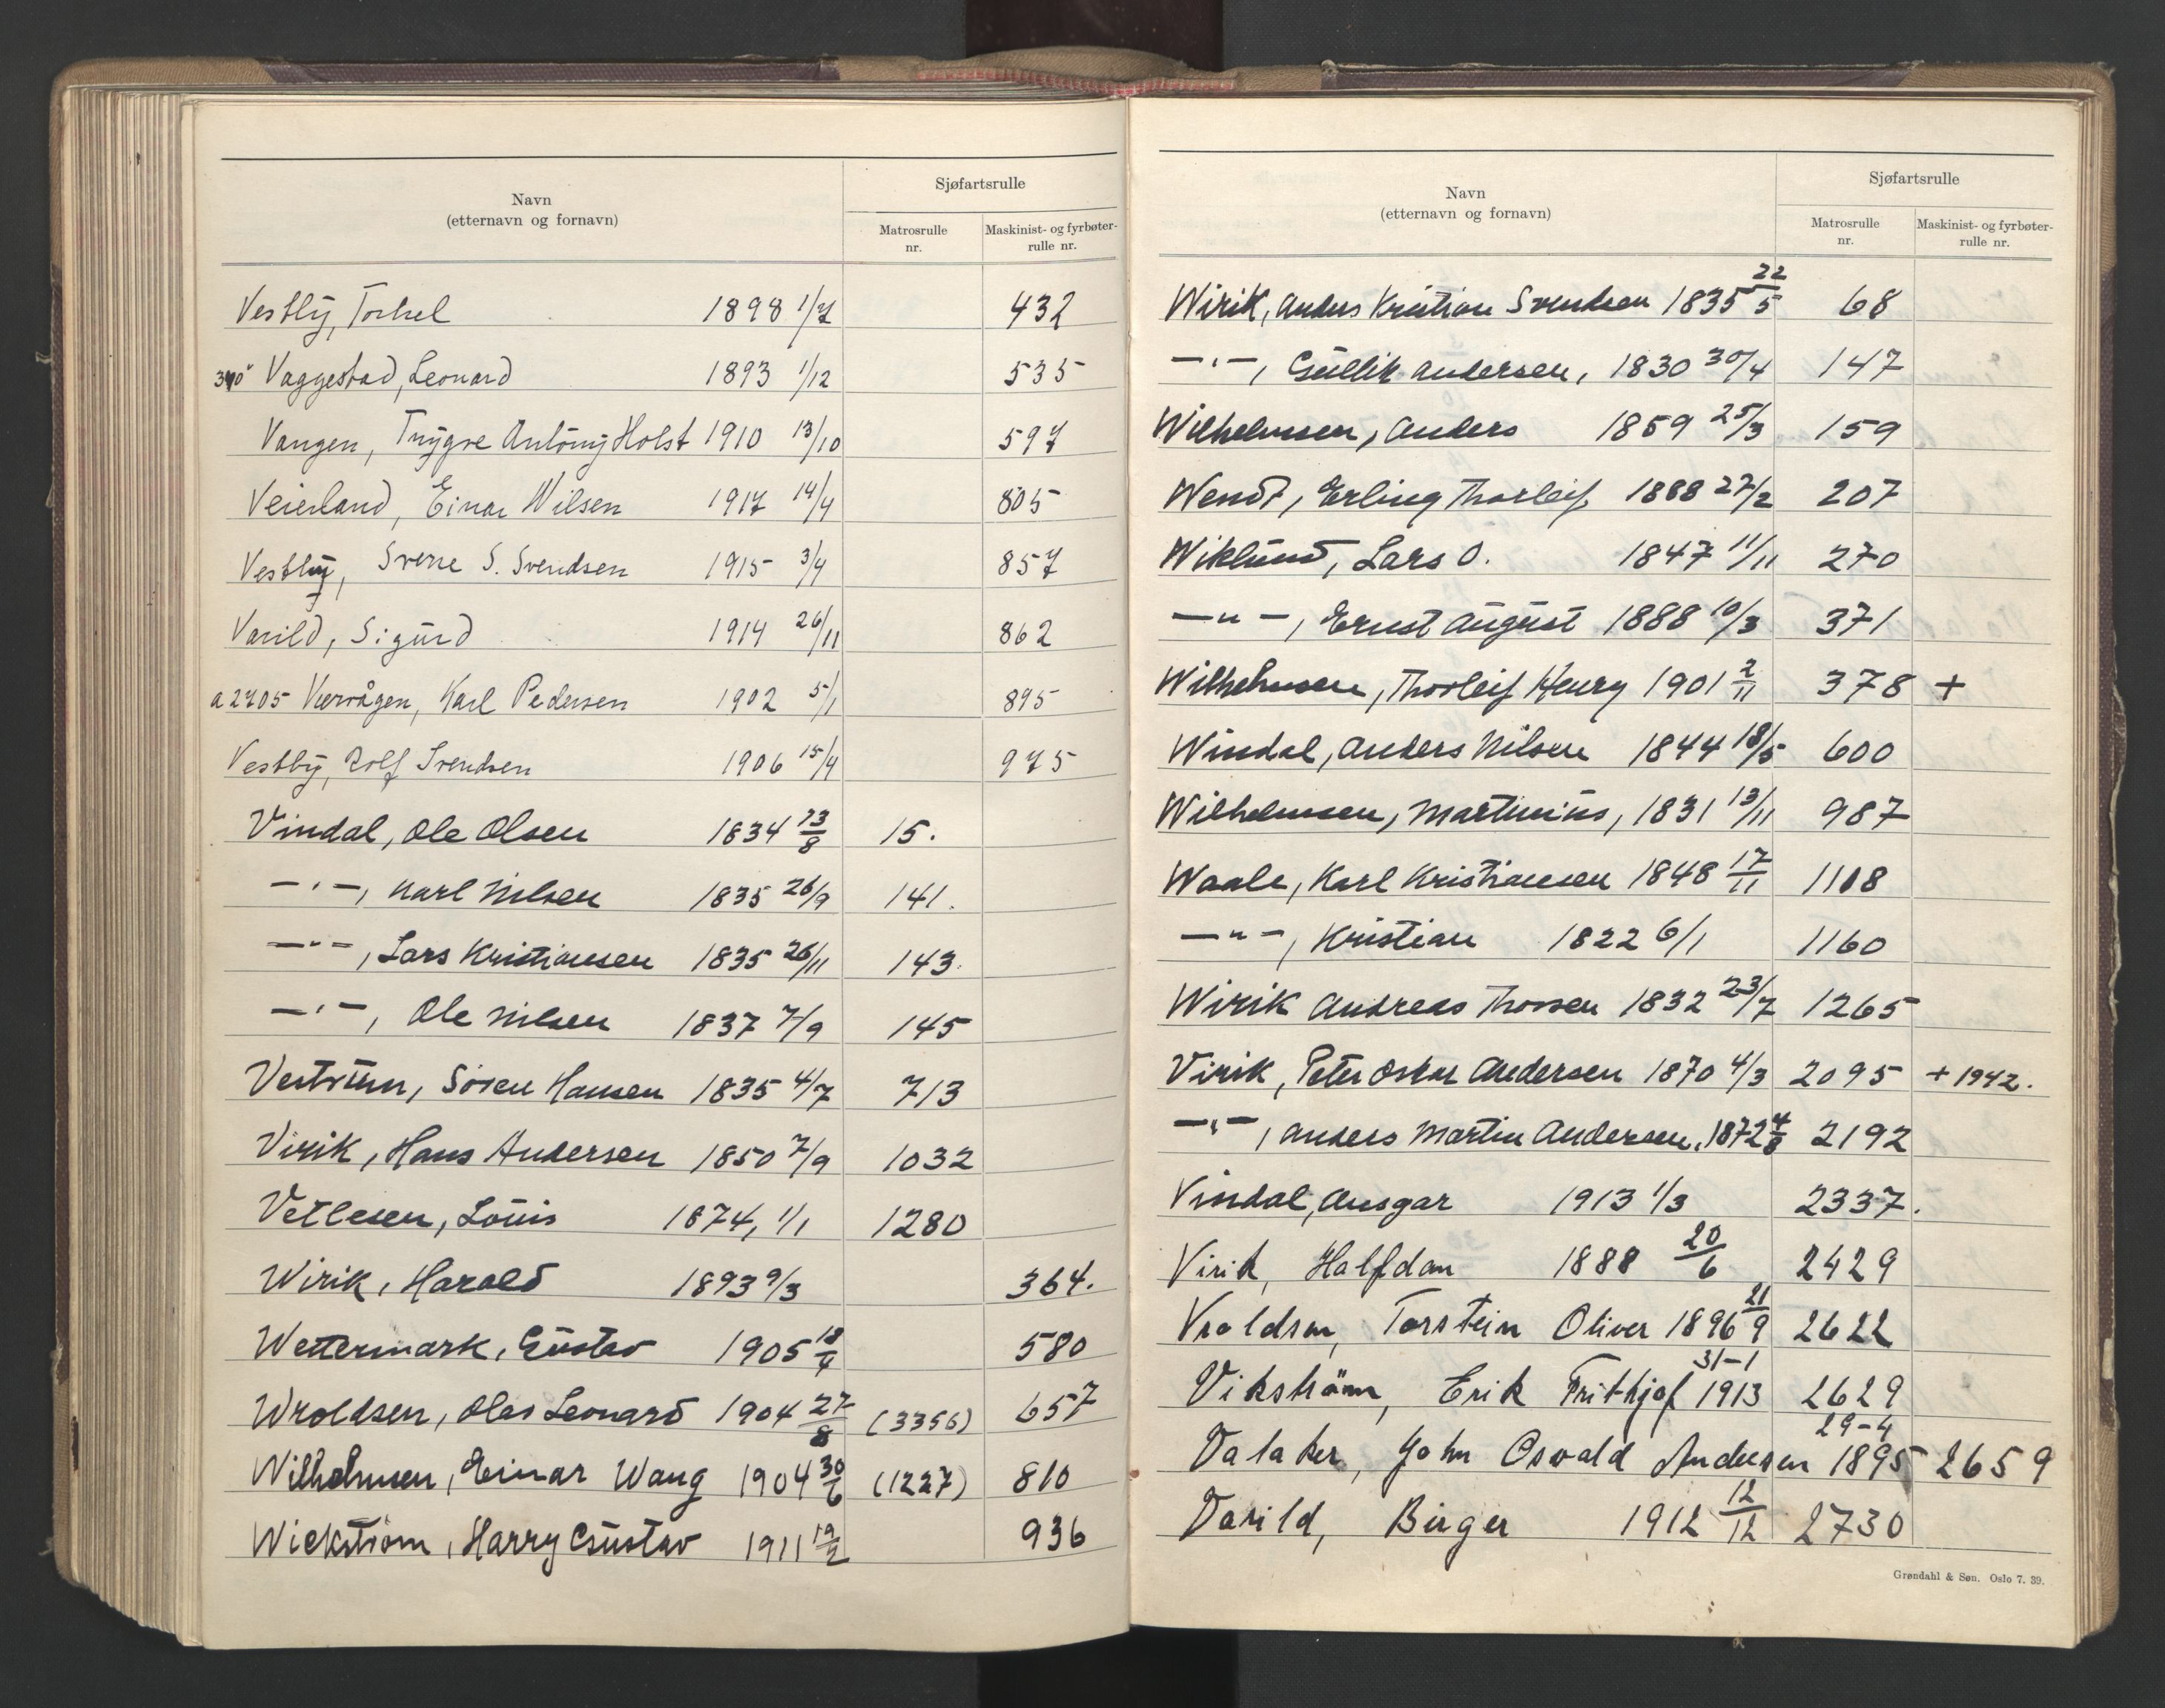 Navn
(etternavn og fornavn)
Sjøfartsrulle
Matrosrulle nr.
Maskinist- og fyrbøter-rulle nr.
Vestby, Torkel 1898 1/7 432
Vaggestad, Leonard 1893 1/12 535
Vangen, Trygve Antony Holst 1910 13/10 597
Veierland, Einar Wilsen 1917 14/4 805
Vestby, Sverre S. Svendsen 1915 3/4 857
Varild, Sigurd 1914 26/11 862
a 2705 Værvågen, Karl Pedersen 1902 5/1 895
Vestby, Rolf Svendsen 1906 15/4 975
Vindal, Ole Olsen 1834 13/8 15.
—"—, Karl Nilsen 1835 26/9 141.
—"—, Lars Kristiansen 1835 26/11 143.
—"—, Ole Nilsen 1837 7/9 145
Vestrum, Sören Hansen 1835 4/7 713
Virik, Hans Andersen 1850 7/9 1032
Vetlesen, Louis 1874, 1/1 1280
Wirik, Harald 1893 9/3 364.
Wettermark, Gustav 1905 18/4 580
Wroldsen, Olav Leonard 1904 27/8 (3356) 657
Wilhelmsen, Einar Wang 1904 30/6 (1227) 810
Wickström, Harry Gustav 1911 19/2 936
Navn
(etternavn og fornavn)
Sjøfartsrulle
Matrosrulle nr.
Maskinist- og fyrbøter-rulle nr.
Wirik, Anders Kristian Svendsen 1835 22/5 68
—"—, Gullik Andersen, 1830 30/4 147
Wilhelmsen, Anders 1859 25/3 159
Wendt, Erling Thorleif 1888 27/2 207
Wiklund, Lars O. 1847 11/11 270
—"—, Ernst August 1888 10/3 371
Wilhelmsen, Thorleif Henry 1901 2/11 378 +
Windal, Anders Nilsen 1844 18/5 600
Wilhelmsen, Martinius, 1831 13/11 987
Waale, Karl Kristiansen 1848 17/11 1108
—"—, Kristian 1822 6/1 1160
Wirik Andreas Thorsen 1832 23/7 1265
Virik, Peter Oskar Andersen 1870 4/3 2095 + 1942.
—"—, Anders Martin Andersen, 1872 4/8 2192
Vindal, Ansgar 1913 1/3 2337.
Virik, Halfdan 1888 20/6 2429
Vroldsen, Torstein Oliver 1896 21/9 2622
Vikström, Erik Frithjof 31-1 1913 2629
Valaker, John Osvald Andersen 29-4 1895 2659
Varild, Birger 1912 12/12 2730
Grøndahl & Søn. Oslo 7. 39.